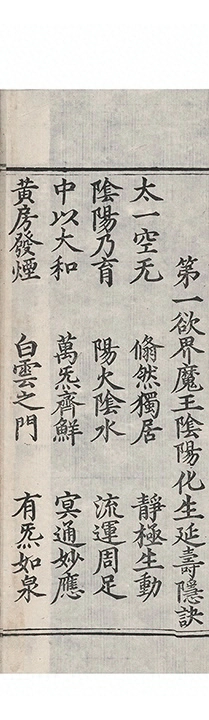 第一欲界魔王陰陽化生延壽隱訣
太一空无 翛然獨居 靜極生動
陰陽乃育 陽火陰水 流運周足
中以大和 萬炁齊鮮 㝠通妙應
黄房發煙 白雲之門 有炁如泉